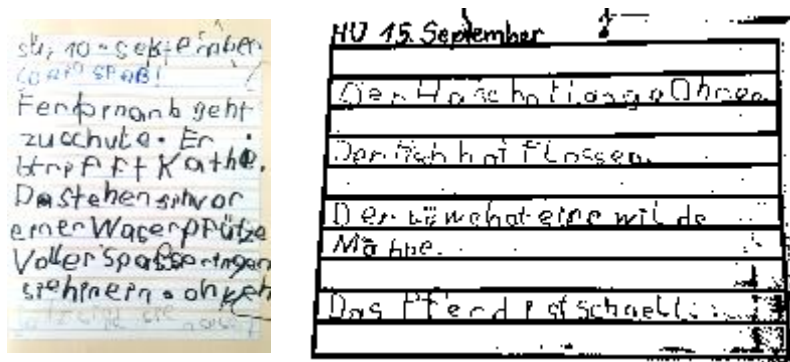 stu, 10 - September
WAS SPAẞ!
Ferdornanb geht
zuschule. Er
trefft Kathe.
Da stehen sihvor
einer Waserpfütze
Voller Spaß springen
siehinein. oh
HÜ 15. September
Der Hase hat lange Ohren.
Der Fisch hat Flossen.
Der Löwe hat eine wilde
Mähne.
Das Pferd ist schnell.